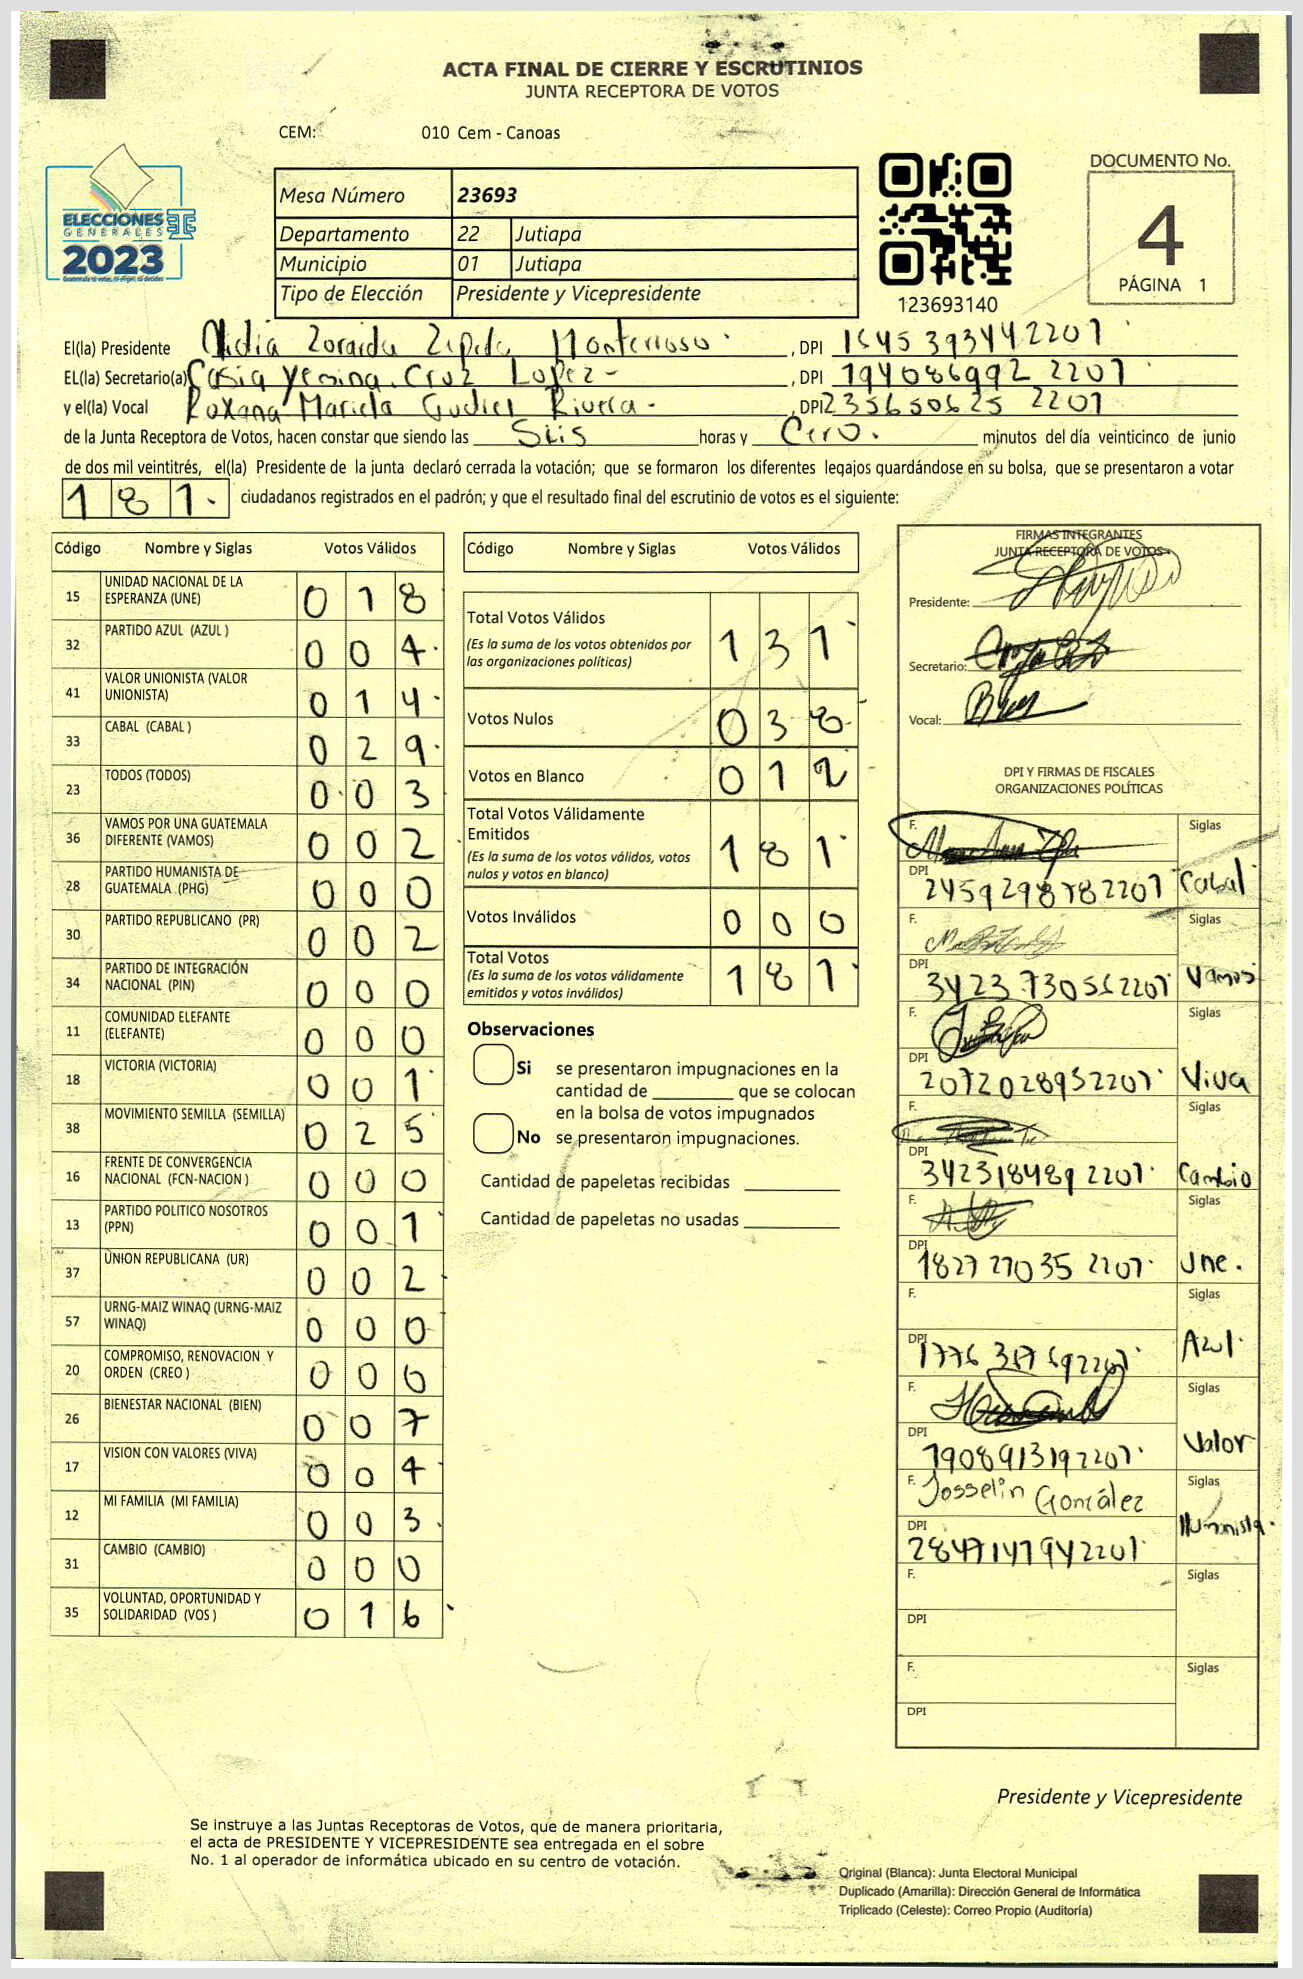 ACTA FINAL DE CIERRE Y ESCRUTINIOS
JUNTA RECEPTORA DE VOTOS
CEM: 010 Cem - Canoas
ELECCIONES
GENERALES
2023
Mesa Número 23693
Departamento 22 Jutiapa
Municipio 01 Jutiapa
Tipo de Elección Presidente y Vicepresidente
123693140
DOCUMENTO No.
4
PÁGINA 1
El(la) Presidente Zoraida Zepeda Monterroso , DPI 1645393442201
EL(la) Secretario(a) Casia Yesina Cruz Lopez , DPI 194086992 2201
y el(la) Vocal Roxana Mariela Gudiel Rivera , DPI 235650625 2201
de la Junta Receptora de Votos, hacen constar que siendo las Seis horas y Cero. minutos del día veinticinco de junio
de dos mil veintitrés, el(la) Presidente de la junta declaró cerrada la votación; que se formaron los diferentes legajos guardándose en su bolsa, que se presentaron a votar
181 ciudadanos registrados en el padrón; y que el resultado final del escrutinio de votos es el siguiente:
Código Nombre y Siglas Votos Válidos
15 UNIDAD NACIONAL DE LA ESPERANZA (UNE) 018
32 PARTIDO AZUL (AZUL ) 004
41 VALOR UNIONISTA (VALOR UNIONISTA) 014
33 CABAL (CABAL ) 029
23 TODOS (TODOS) 003
36 VAMOS POR UNA GUATEMALA DIFERENTE (VAMOS) 002
28 PARTIDO HUMANISTA DE GUATEMALA (PHG) 000
30 PARTIDO REPUBLICANO (PR) 002
34 PARTIDO DE INTEGRACIÓN NACIONAL (PIN) 000
11 COMUNIDAD ELEFANTE (ELEFANTE) 000
18 VICTORIA (VICTORIA) 001
38 MOVIMIENTO SEMILLA (SEMILLA) 025
16 FRENTE DE CONVERGENCIA NACIONAL (FCN-NACION ) 000
13 PARTIDO POLITICO NOSOTROS (PPN) 001
37 UNION REPUBLICANA (UR) 002
57 URNG-MAIZ WINAQ (URNG-MAIZ WINAQ) 000
20 COMPROMISO, RENOVACION Y ORDEN (CREO ) 000
26 BIENESTAR NACIONAL (BIEN) 007
17 VISION CON VALORES (VIVA) 004
12 MI FAMILIA (MI FAMILIA) 003
31 CAMBIO (CAMBIO) 000
35 VOLUNTAD, OPORTUNIDAD Y SOLIDARIDAD (VOS ) 016
Código Nombre y Siglas Votos Válidos
Total Votos Válidos 131
(Es la suma de los votos obtenidos por
las organizaciones políticas)
Votos Nulos 038
Votos en Blanco 012
Total Votos Válidamente
Emitidos 181
(Es la suma de los votos válidos, votos
nulos y votos en blanco)
Votos Inválidos 000
Total Votos 181
(Es la suma de los votos válidamente
emitidos y votos inválidos)
Observaciones
Si se presentaron impugnaciones en la
cantidad de ________ que se colocan
en la bolsa de votos impugnados
No se presentaron impugnaciones.
Cantidad de papeletas recibidas
Cantidad de papeletas no usadas
FIRMAS INTEGRANTES
JUNTA RECEPTORA DE VOTOS
Presidente:
Secretario:
Vocal:
DPI Y FIRMAS DE FISCALES
ORGANIZACIONES POLÍTICAS
F. Siglas
DPI 2459298782201 Cabal
F. Siglas
DPI 3423730562201 Vamos
F. Siglas
DPI 2072028952201 Viva
F. Siglas
DPI 342318489 2201 Cambio
F. Siglas
DPI 1827 27035 2201 Une.
F. Siglas
DPI Azul
F. Siglas
DPI 1908913192201 Valor
F. Josselin González Siglas
DPI 2847147942201 Humanista
F. Siglas
DPI
F. Siglas
DPI
Presidente y Vicepresidente
Se instruye a las Juntas Receptoras de Votos, que de manera prioritaria,
el acta de PRESIDENTE Y VICEPRESIDENTE sea entregada en el sobre
No. 1 al operador de informática ubicado en su centro de votación.
Original (Blanca): Junta Electoral Municipal
Duplicado (Amarilla): Dirección General de Informática
Triplicado (Celeste): Correo Propio (Auditoría)